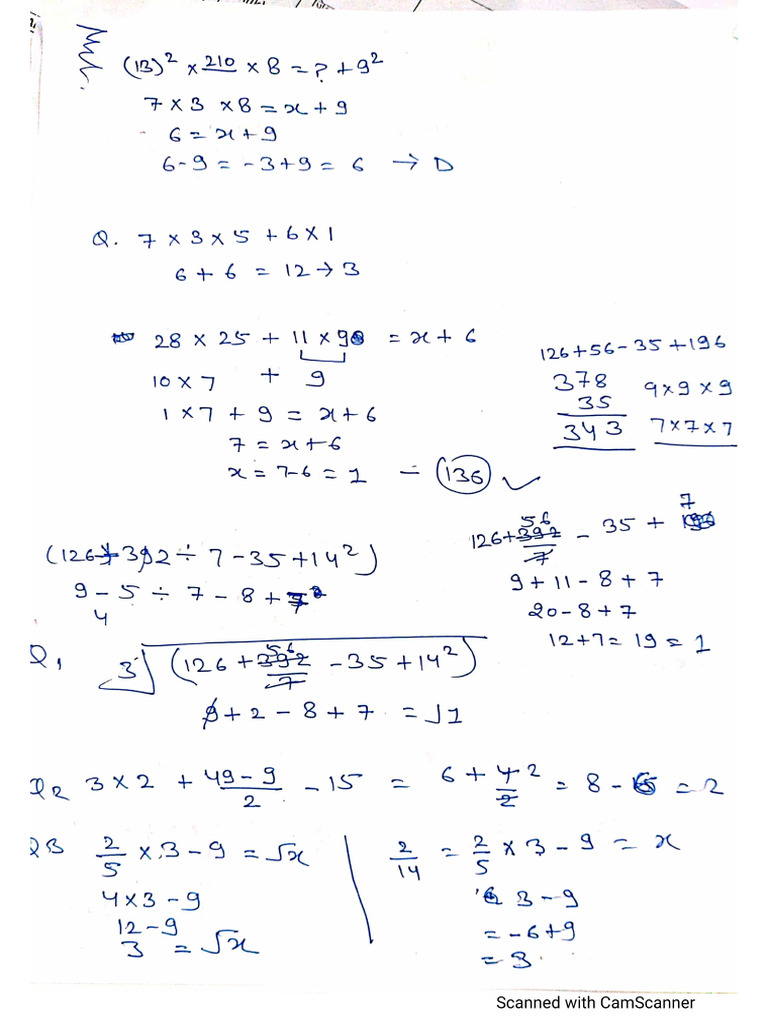 (13)² × 210 × 8 = ? + 9²
7 × 3 × 8 = x + 9
6 = x + 9
6 - 9 = -3 + 9 = 6 → D
Q. 7 × 3 × 5 + 6 × 1
6 + 6 = 12 → 3
28 × 25 + 11 × 90 = x + 6
10 × 7 + 9
1 × 7 + 9 = x + 6
7 = x + 6
x = 7 - 6 = 1 - 136 ✓
126 + 56 - 35 + 196
378 9 × 9 × 9
35
343 7 × 7 × 7
(126 + 392 ÷ 7 - 35 + 14²)
9 - 5 ÷ 7 - 8 + 7
4
56 7
126 + 392/7 - 35 + 196
9 + 11 - 8 + 7
20 - 8 + 7
12 + 7 = 19 = 1
Q1 ³√(126 + 392/7 56 - 35 + 14²)
9 + 2 - 8 + 7 = √1
Q2 3 × 2 + 49 - 9/2 - 15 = 6 + 4/2 2 = 8 - 6 = 2
Q3 2/5 × 3 - 9 = √x
4 × 3 - 9
12 - 9
3 = √x
2/14 = 2/5 × 3 - 9 = x
3 - 9
= -6 + 9
= 3
Scanned with CamScanner